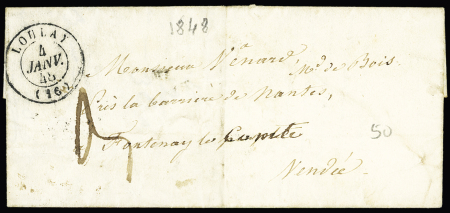 1848
LOULAY
4
JANV.
48
(16)
Monsieur Vénard,
Md. de Bois
Près la barrière de Nantes,
Fontenay le Comte
50
Vendée.